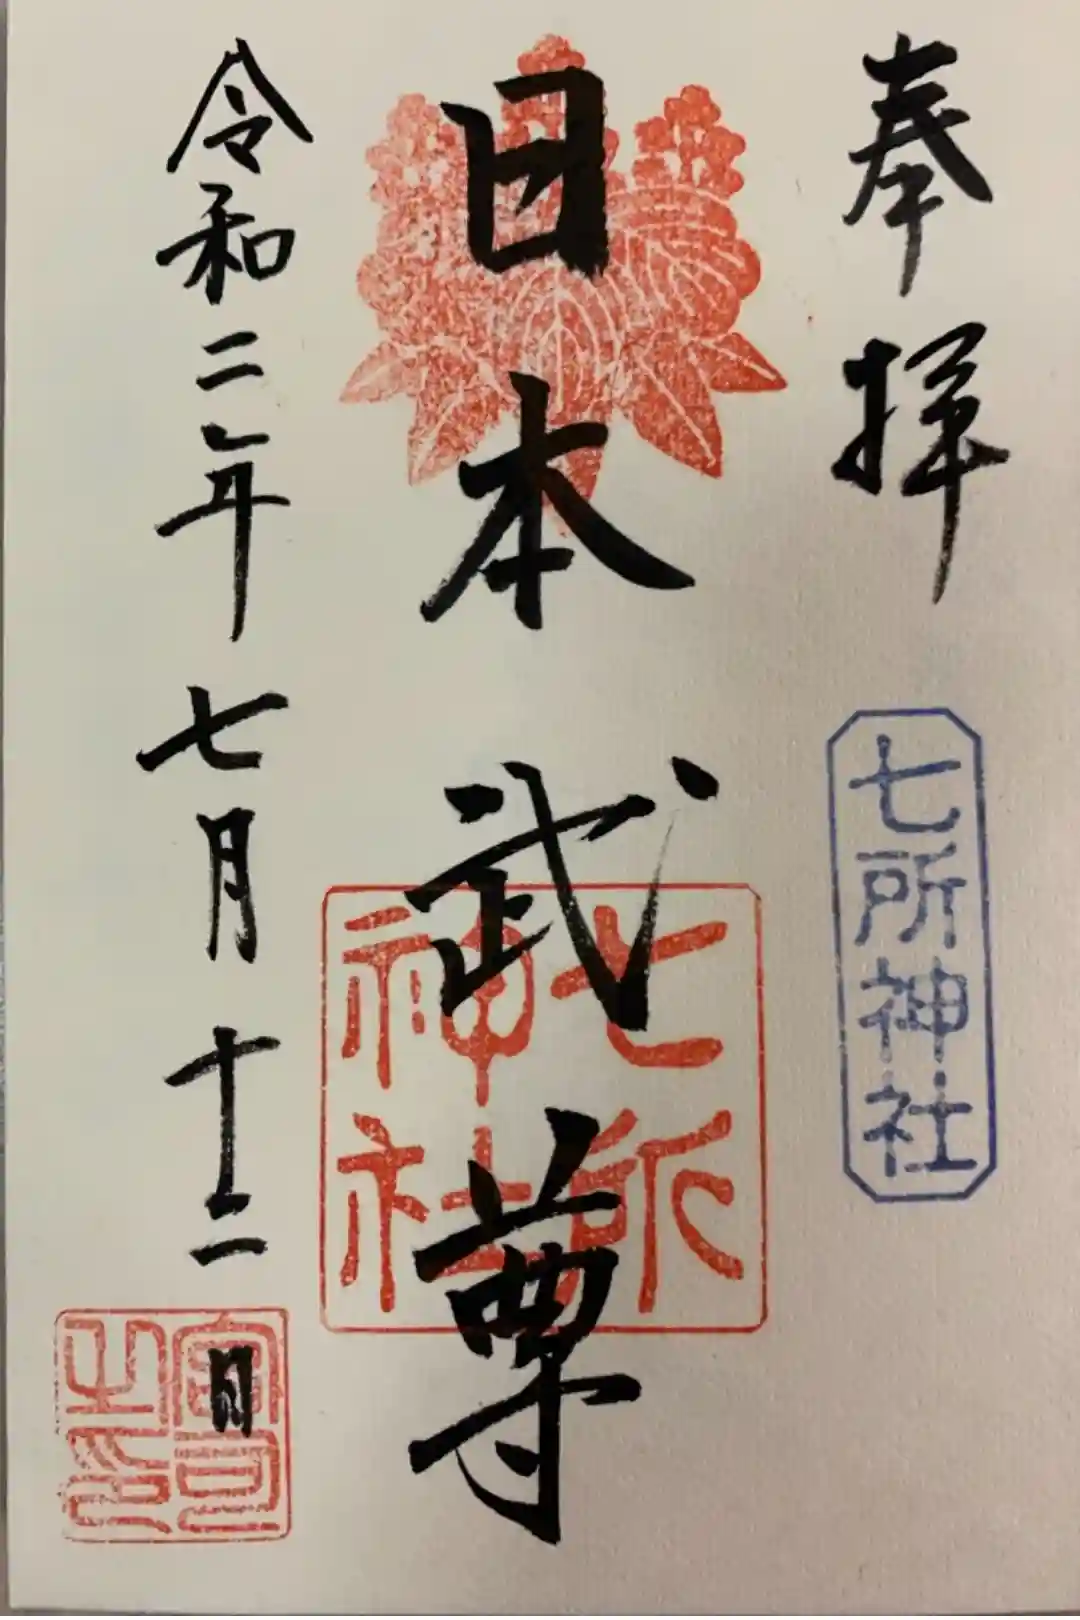 奉拝
七所神社
日本武尊
七所
神社
令和二年七月十二日
宮司
之印